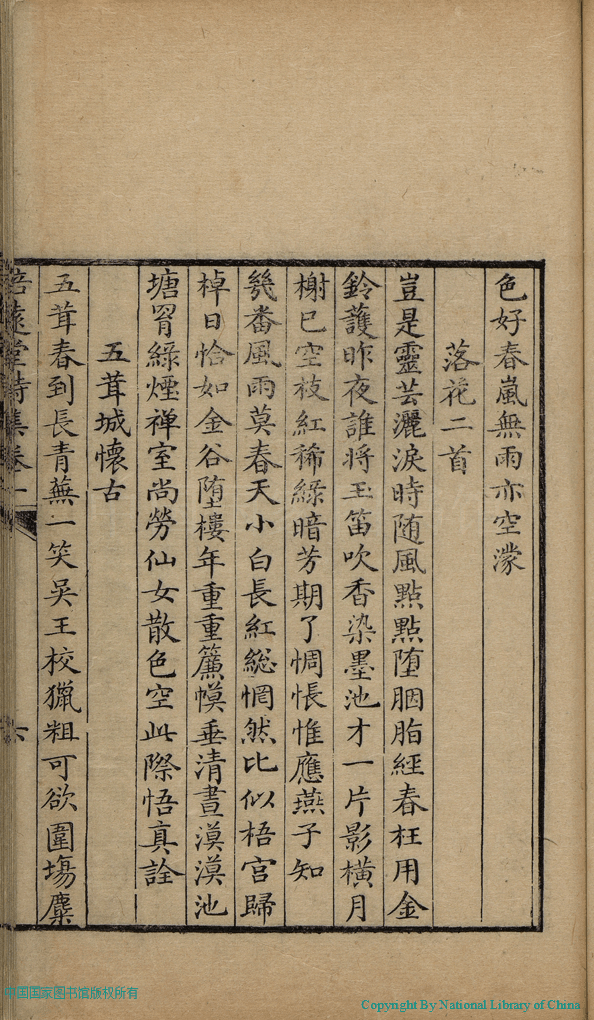 色好春嵐無雨亦空濛
落花二首
豈是靈芸灑淚時随風點點堕胭脂經春枉用金
鈴護昨夜誰將玉笛吹香染墨池才一片影橫月
榭已空枝紅稀綠暗芳期了惆悵惟應燕子知
幾番風雨莫春天小白長紅総惘然比似梧宮歸
棹日恰如金谷堕樓年重重簾幙垂清晝漠漠池
塘罥綠煙禅室尚勞仙女散色空此際悟真詮
五茸城懷古
五茸春到長青蕪一笑吳王校獵粗可欲圍場麋
培遠堂詩集卷一
六
中国国家图书馆版权所有
Copyright By National Library of China